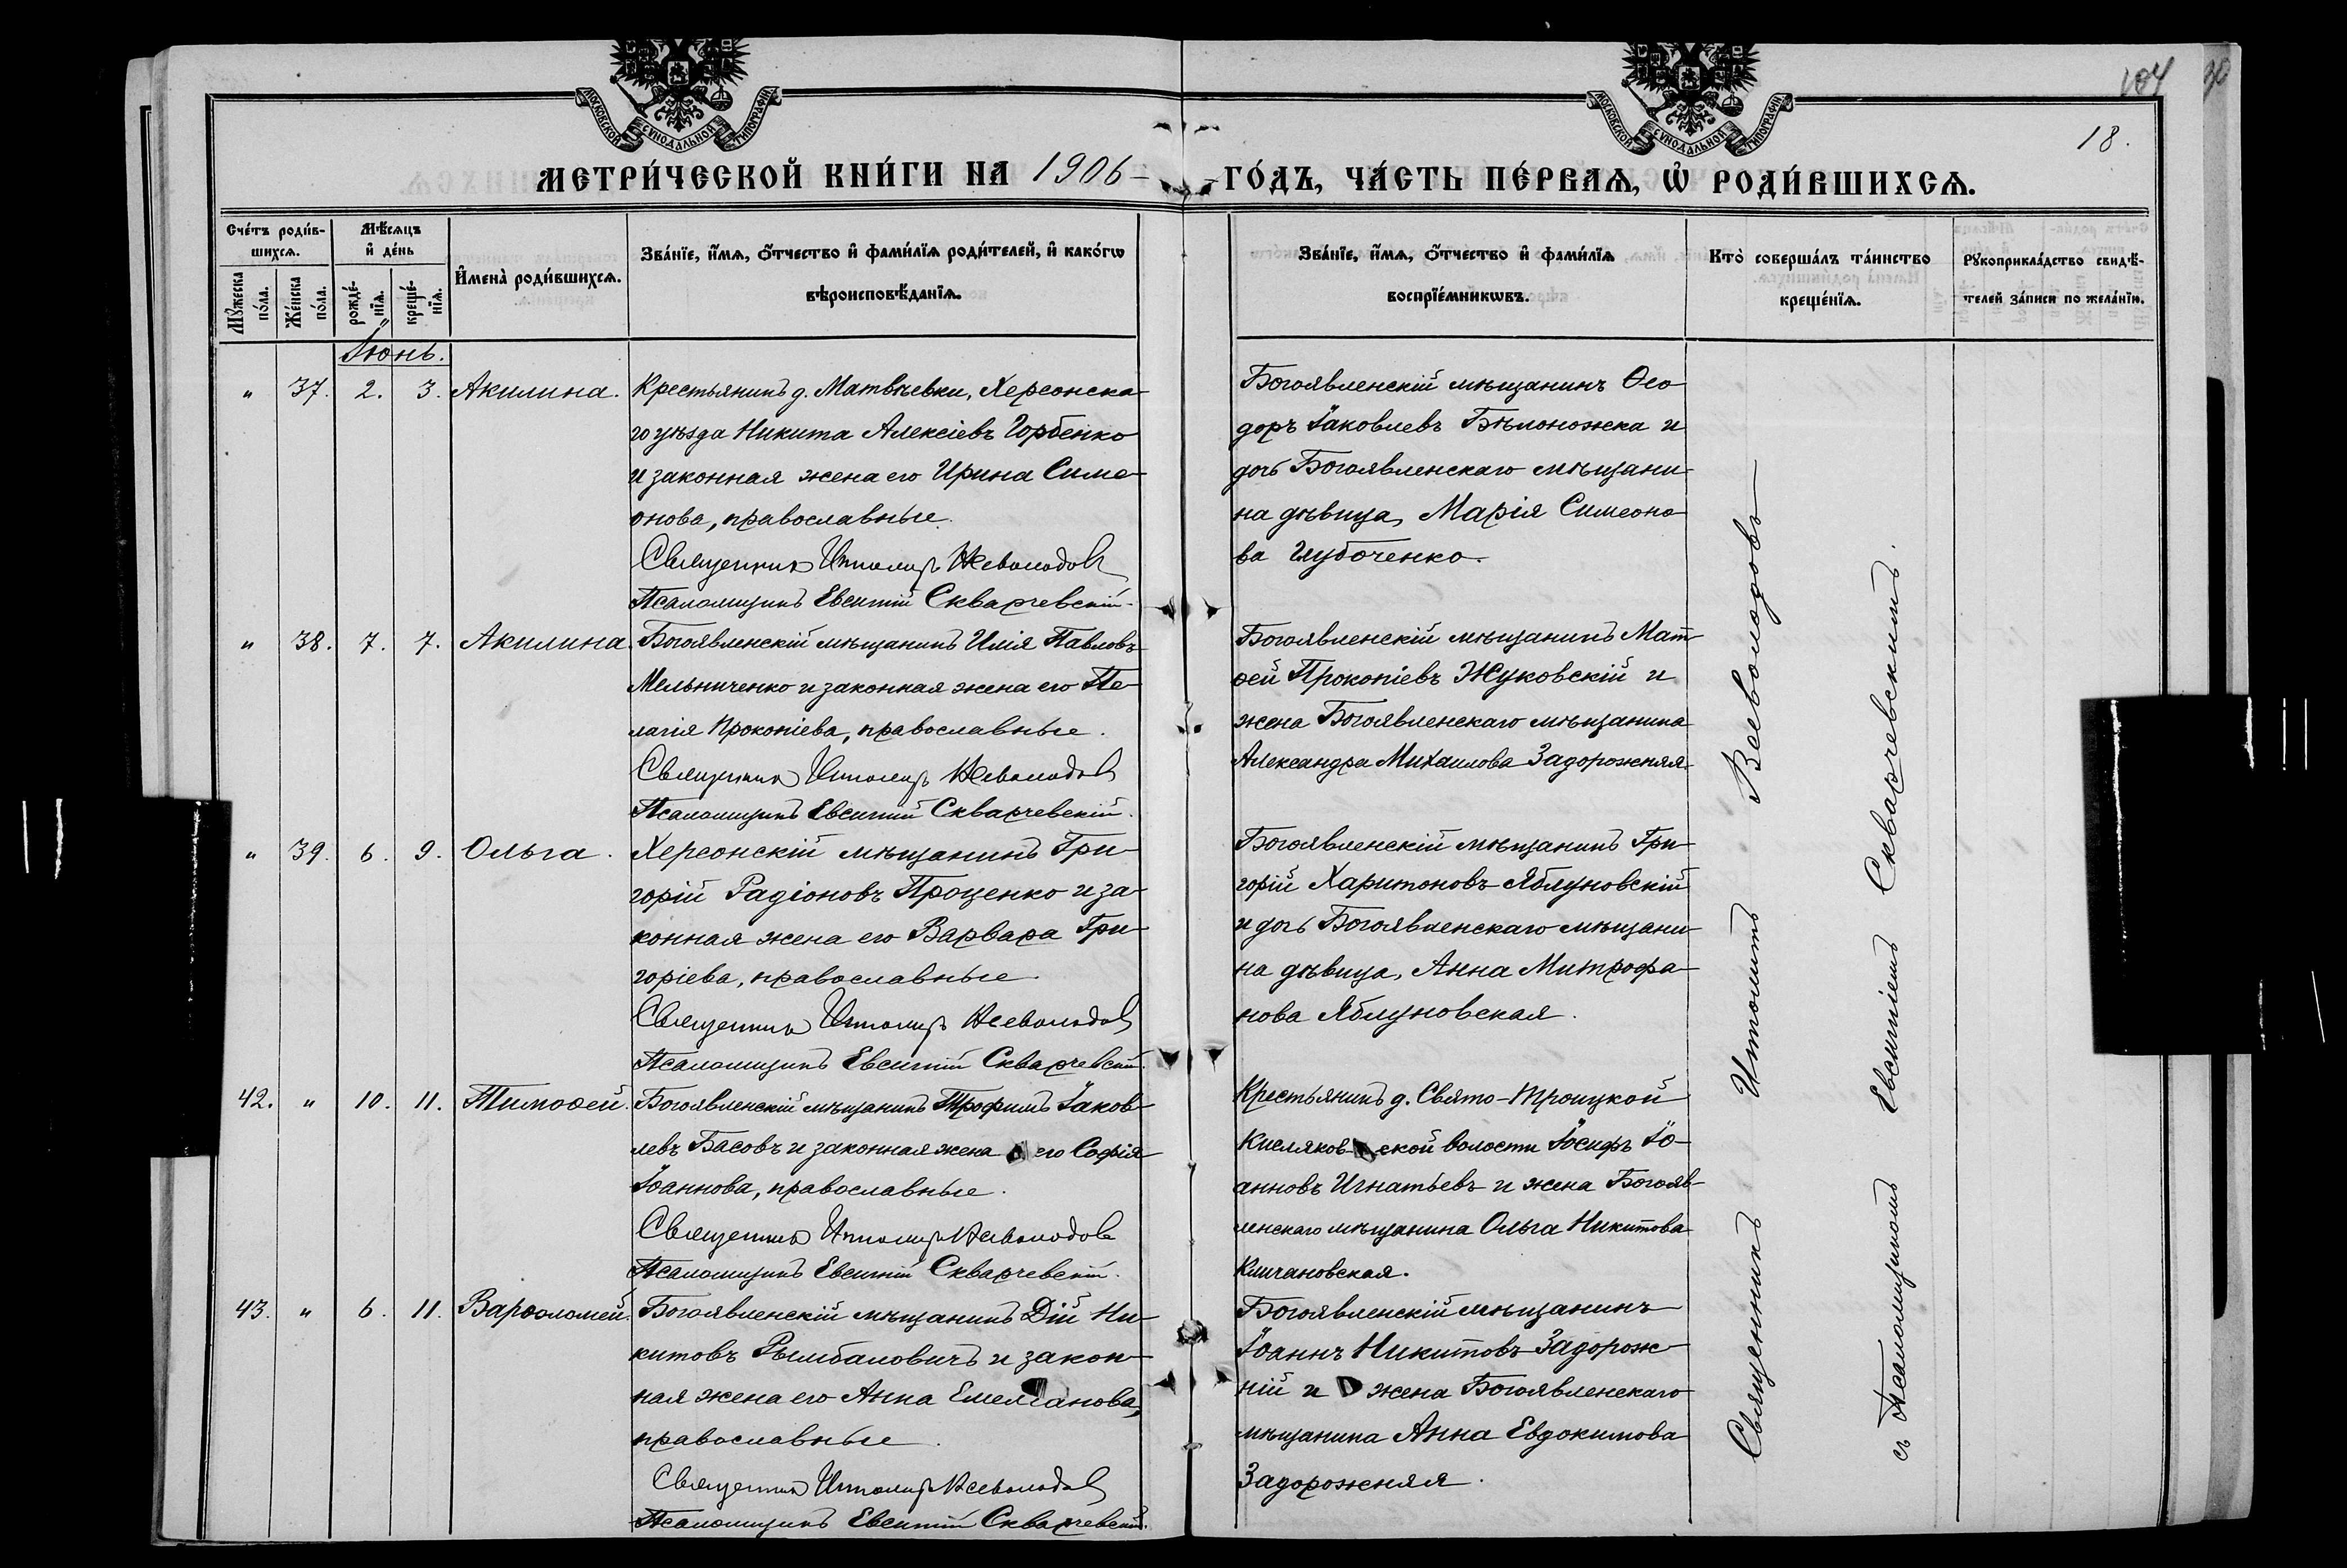 МОСКОВСКОЙ СѴНОДАЛЬНОЙ ТИПОГРАФІИ
МОСКОВСКОЙ СѴНОДАЛЬНОЙ ТИПОГРАФІИ
104
18.
МЕТРИ́ЧЕСКОЙ КНИ́ГИ НА 1906 ГО́ДЪ, ЧА́СТЬ ПЕ́РВАѦ, Ѡ҆ РОДИ́ВШИХСѦ.
Сче́тъ роди́в-
шихсѧ.
Мꙋ́жеска по́ла.
Же́нска по́ла.
Мѣ́сѧцъ
и҆ де́нь
рожде́-
нїѧ.
креще́-
нїѧ.
И҆мена̀ роди́вшихсѧ.
Зва́нїе, и҆́мѧ, ѻ҆́тчество и҆ фами́лїѧ роди́телей, и҆ како́гѡ
вѣроисповѣ́данїѧ.
Зва́нїе, и҆́мѧ, ѻ҆́тчество и҆ фами́лїѧ
воспрїе́мникѡвъ.
Кто̀ соверша́лъ та́инство
креще́нїѧ.
Рꙋкоприкла́дство свидѣ́-
телей за́писи по жела́нїю.
Іюнь.
" 37. 2. 3. Акилина.
Крестьянинъ д. Матвѣевки, Херсонска-
го уѣзда Никита Алексіевъ Горбенко
и законная жена его Ирина Симе-
онова, православные.
Священникъ Ипполитъ Всеволодовъ
Псаломщикъ Евсигній Скварчевскій.
Богоявленскій мѣщанинъ Ѳео-
доръ Іаковлевъ Бѣлоножка и
дочь Богоявленскаго мѣщани-
на дѣвица, Марія Симеоно-
ва Глубоченко.
" 38. 7. 7. Акилина.
Богоявленскій мѣщанинъ Илія Павловъ
Мельниченко и законная жена его Пе-
лагія Прокопіева, православные.
Священникъ Ипполитъ Всеволодовъ
Псаломщикъ Евсигній Скварчевскій.
Богоявленскій мѣщанинъ Мат-
ѳей Прокопіевъ Жуковскій и
жена Богоявленскаго мѣщанина
Александра Михаилова Задорожняя.
" 39. 6. 9. Ольга.
Херсонскій мѣщанинъ Гри-
горій Радіоновъ Проценко и за-
конная жена его Варвара Гри-
горіева, православные.
Священникъ Ипполитъ Всеволодовъ
Псаломщикъ Евсигній Скварчевскій.
Богоявленскій мѣщанинъ Гри-
горій Харитоновъ Яблуновскій
и дочь Богоявленскаго мѣщани-
на дѣвица, Анна Митрофа-
нова Яблуновская.
42. " 10. 11. Тимоѳей.
Богоявленскій мѣщанинъ Трофимъ Іаков-
левъ Басовъ и законная жена его Софія
Іоаннова, православные.
Священникъ Ипполитъ Всеволодовъ
Псаломщикъ Евсигній Скварчевскій.
Крестьянинъ д. Свято-Троицкой
Кисляковской волости Іосифъ Іо-
анновъ Игнатьевъ и жена Богояв-
ленскаго мѣщанина Ольга Никитова
Климановская.
43. " 6. 11. Варѳоломей.
Богоявленскій мѣщанинъ Дій Ни-
китовъ Рымбаловичъ и закон-
ная жена его Анна Емеліанова,
православные.
Священникъ Ипполитъ Всеволодовъ
Псаломщикъ Евсигній Скварчевскій.
Богоявленскій мѣщанинъ
Іоаннъ Никитовъ Задорож-
ній и жена Богоявленскаго
мѣщанина Анна Евдокимова
Задорожняя.
Священникъ Ипполитъ Всеволодовъ
съ Псаломщикомъ Евсигніемъ Скварчевскимъ.